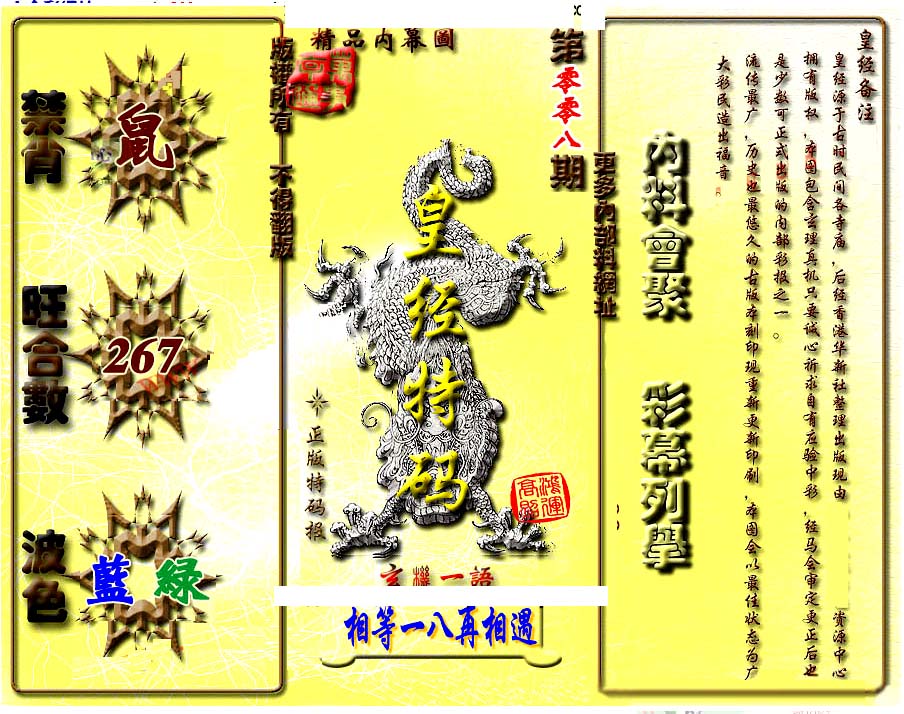 精品内幕圖
第零零八期
版權所有 不得翻版
更多內部料網址
禁肖
鼠
旺合數
267
波色
藍 綠
皇经特码
正版特码报
鸿運高照
玄機一語
相等一八再相遇
内料會聚 彩幕列舉
皇经备注
皇经源于古时民间各寺庙,后经香港华新社整理出版现由 资源中心
拥有版权,本图包含玄理真机只要诚心祈求自有应验中彩,经马会审定更正后也
是少数可正式出版的内部彩报之一。
流传最广,历史也最悠久的古版本刻印现重新更新印刷,本图会以最佳状态为广
大彩民造出福音